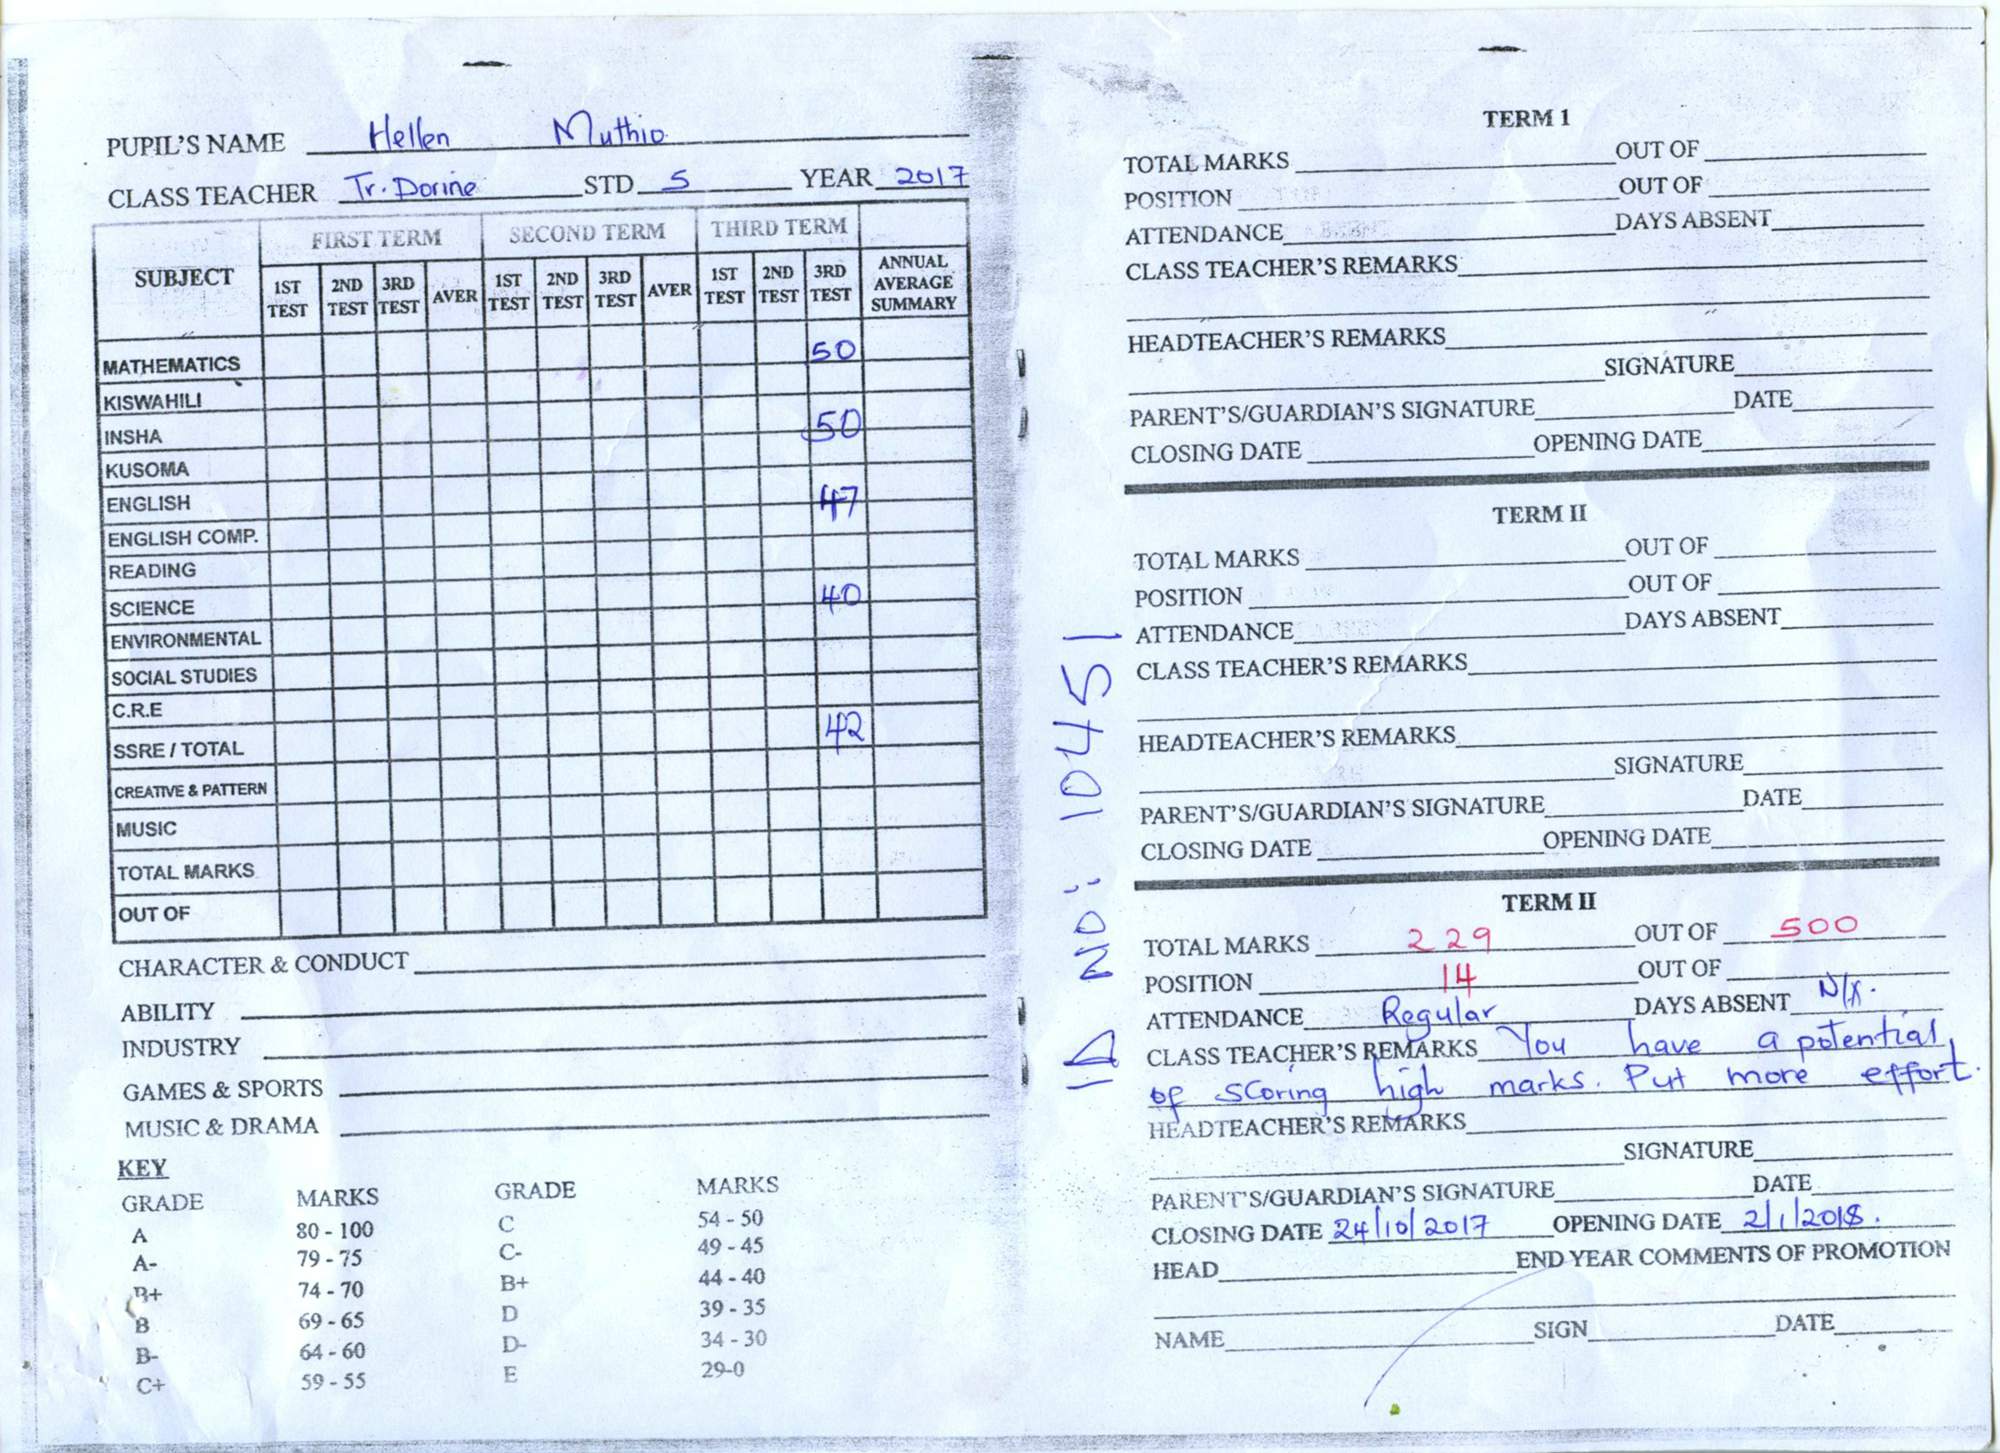 PUPIL'S NAME Hellen Muthio
CLASS TEACHER Tr. Dorine STD 5 YEAR 2017
SUBJECT FIRST TERM SECOND TERM THIRD TERM ANNUAL AVERAGE SUMMARY
1ST TEST 2ND TEST 3RD TEST AVER 1ST TEST 2ND TEST 3RD TEST AVER 1ST TEST 2ND TEST 3RD TEST
MATHEMATICS 50
KISWAHILI
INSHA 50
KUSOMA
ENGLISH 47
ENGLISH COMP.
READING
SCIENCE 40
ENVIRONMENTAL
SOCIAL STUDIES
C.R.E
SSRE / TOTAL 42
CREATIVE & PATTERN
MUSIC
TOTAL MARKS
OUT OF
CHARACTER & CONDUCT
ABILITY
INDUSTRY
GAMES & SPORTS
MUSIC & DRAMA
KEY
GRADE MARKS GRADE MARKS
A 80 - 100 C 54 - 50
A- 79 - 75 C- 49 - 45
B+ 74 - 70 B+ 44 - 40
B 69 - 65 D 39 - 35
B- 64 - 60 D- 34 - 30
C+ 59 - 55 E 29-0
ID NO: 10451
TERM 1
TOTAL MARKS OUT OF
POSITION OUT OF
ATTENDANCE DAYS ABSENT
CLASS TEACHER'S REMARKS
HEADTEACHER'S REMARKS
SIGNATURE
PARENT'S/GUARDIAN'S SIGNATURE DATE
CLOSING DATE OPENING DATE
TERM II
TOTAL MARKS OUT OF
POSITION OUT OF
ATTENDANCE DAYS ABSENT
CLASS TEACHER'S REMARKS
HEADTEACHER'S REMARKS
SIGNATURE
PARENT'S/GUARDIAN'S SIGNATURE DATE
CLOSING DATE OPENING DATE
TERM II
TOTAL MARKS 229 OUT OF 500
POSITION 14 OUT OF
ATTENDANCE Regular DAYS ABSENT N/A.
CLASS TEACHER'S REMARKS You have a potential
of scoring high marks. Put more effort.
HEADTEACHER'S REMARKS
SIGNATURE
PARENT'S/GUARDIAN'S SIGNATURE DATE
CLOSING DATE 24/10/2017 OPENING DATE 2/1/2018.
HEAD END YEAR COMMENTS OF PROMOTION
NAME SIGN DATE